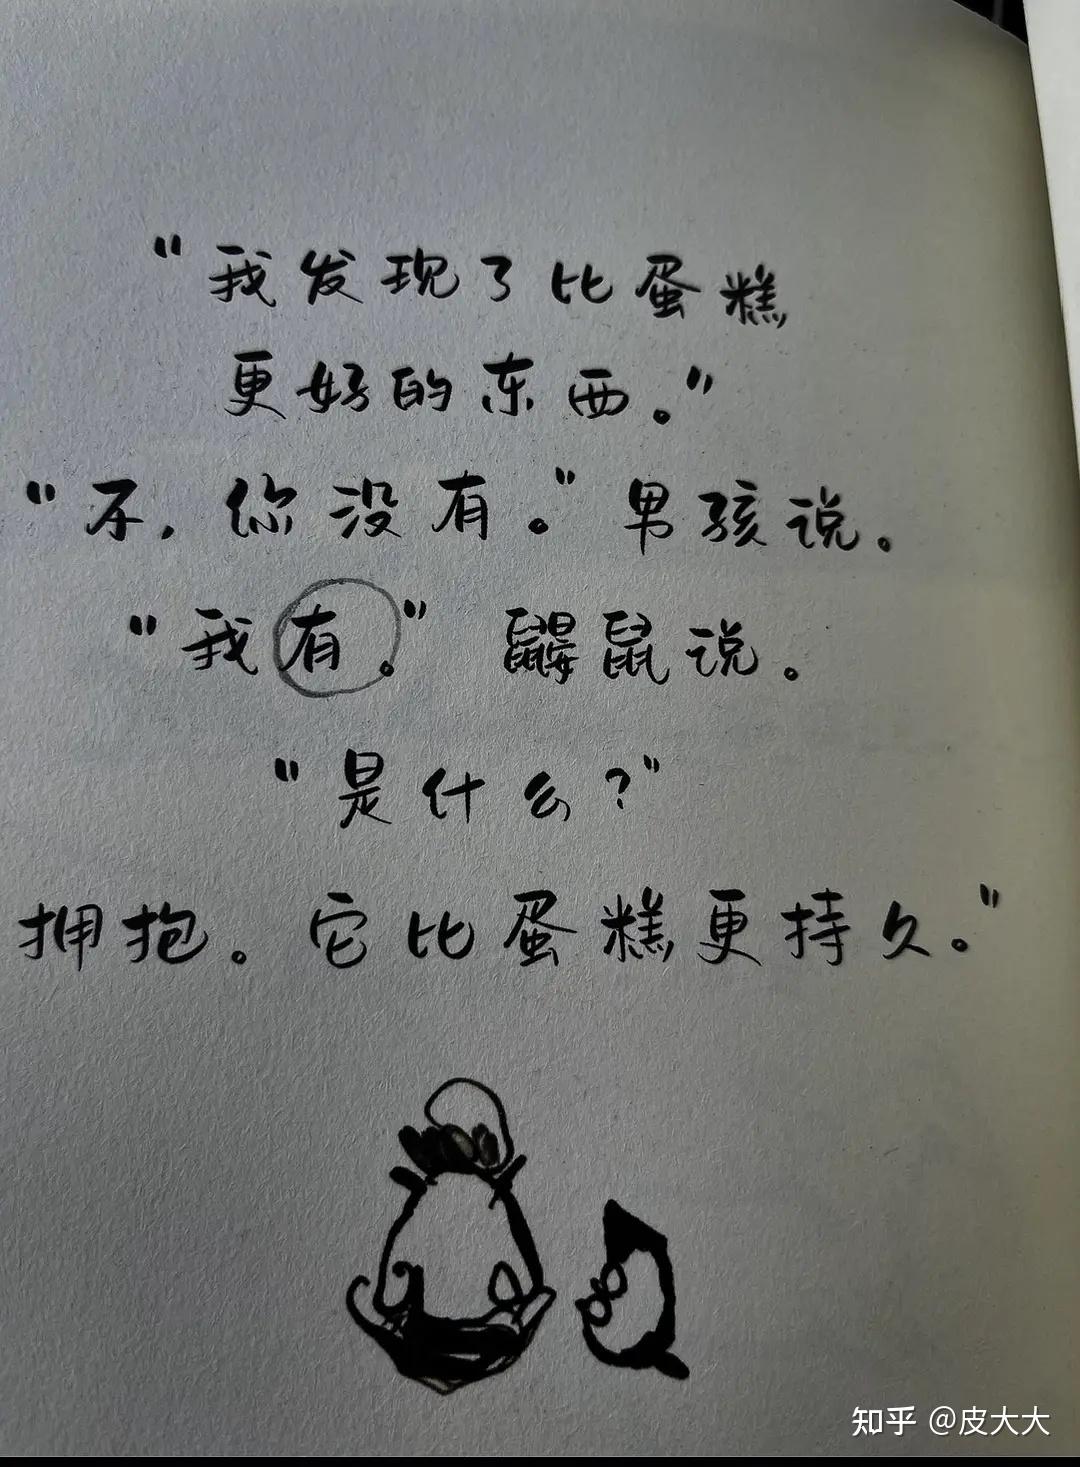 “我发现了比蛋糕
更好的东西。”
“不，你没有。”男孩说。
“我有。”鼹鼠说。
“是什么？”
拥抱。它比蛋糕更持久。”
知乎 @皮大大